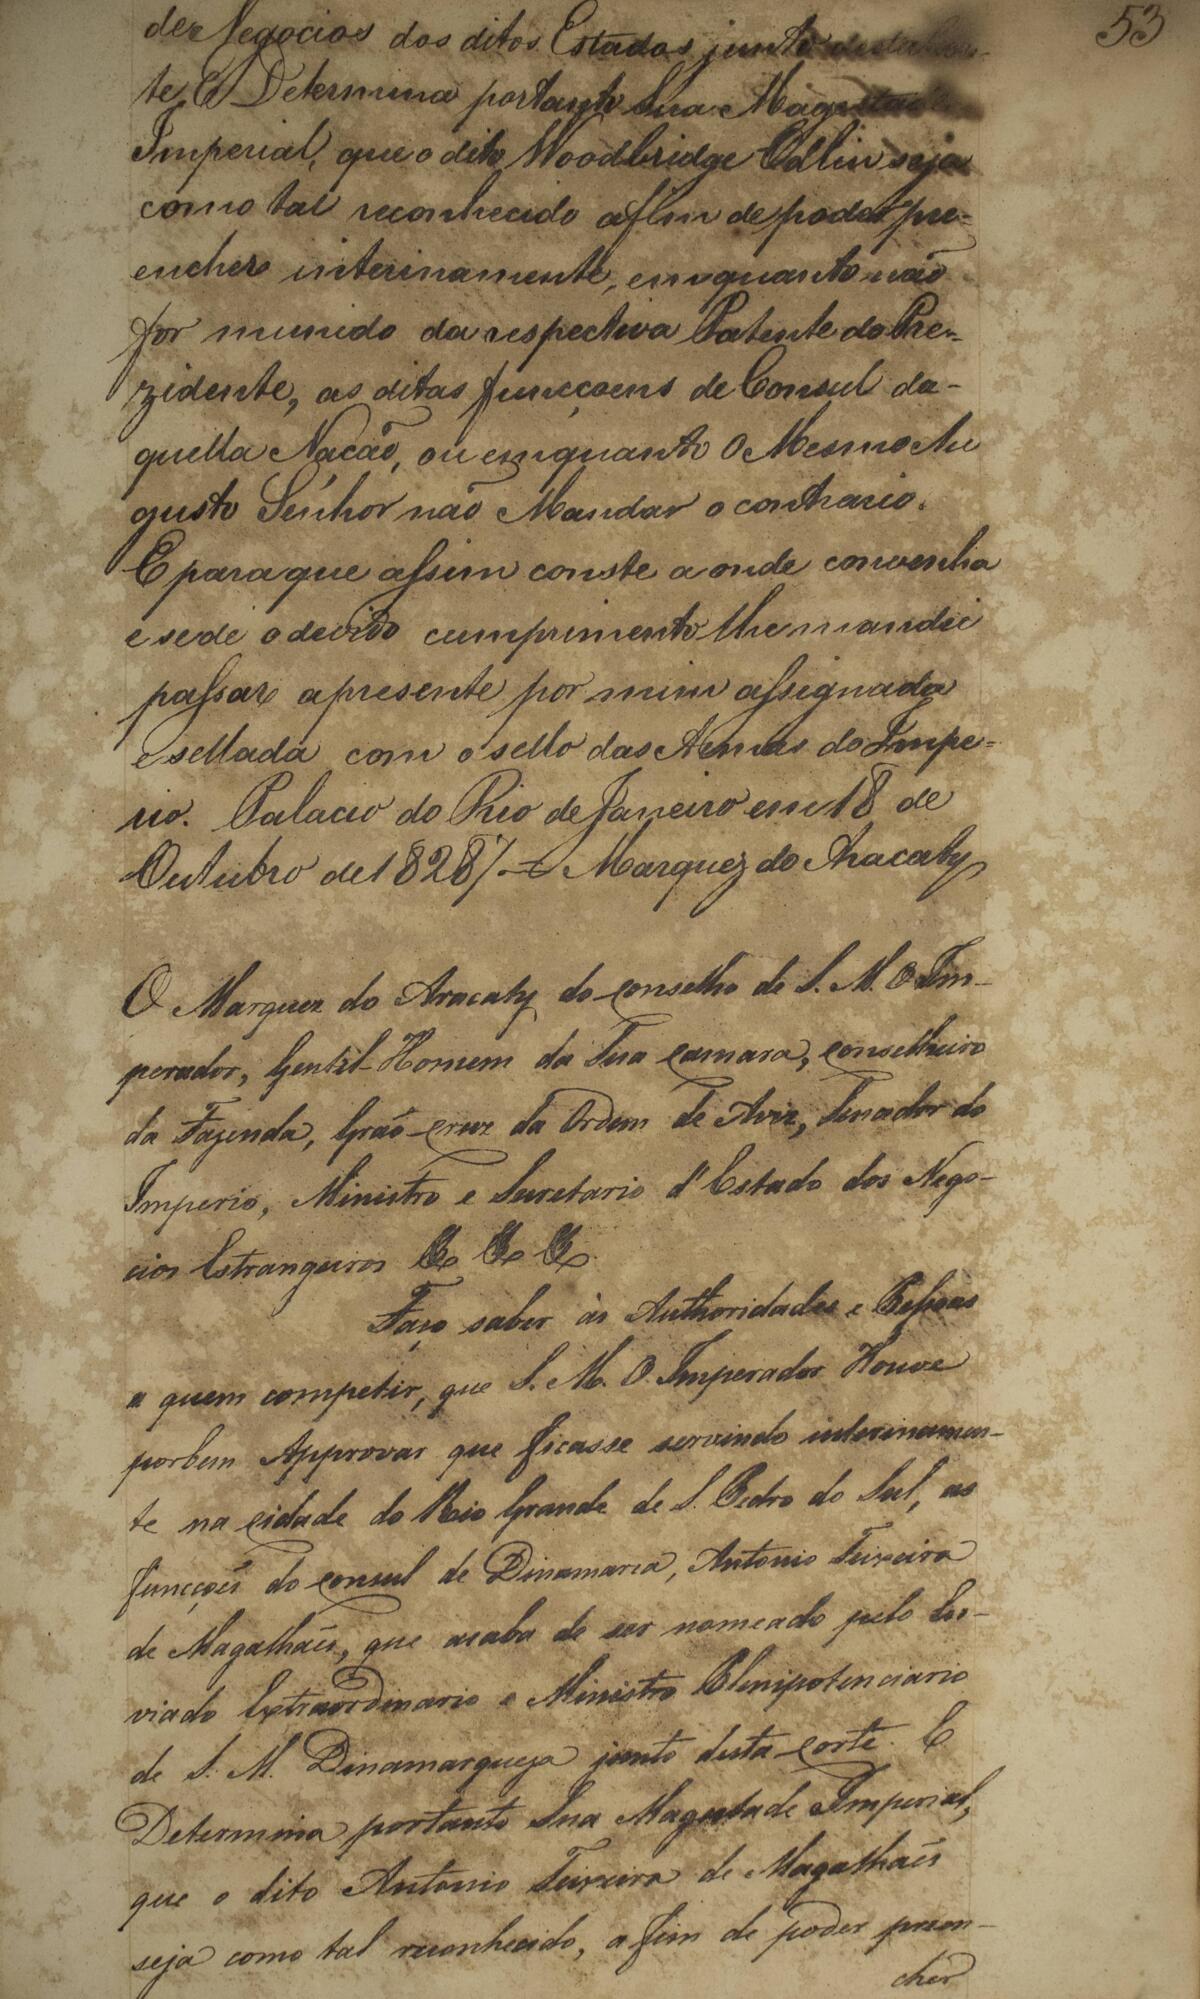 53
de Negocios dos ditos Estados junto desta Cor-
te E Determina portanto Sua Magestade
Imperial, que o dito Woodbridge Odlin seja
como tal reconhecido affim de poder pre-
encher interinamente, emquanto não
for munido da respectiva Patente do Pre-
zidente, as ditas funcçoens de Consul da-
quella Nacão, ou emquanto O Mesmo Au
gusto Senhor não Mandar o contrario.
E para que assim conste a onde convenha
e se dê o devido cumprimento lhe mandei
passar a presente por mim assignada
e sellada com o sello das Armas do Impe-
rio. Palacio do Rio de Janeiro em 18 de
Outubro de 1828 /= Marquez do Aracaty
O Marquez do Aracaty do Conselho de S. M. O Im-
perador, Gentil-Homem da Sua Camara, Conselheiro
da Fazenda, Grão-Cruz da Ordem de Aviz, Senador do
Imperio, Ministro e Secretario d'Estado dos Nego-
cios Estrangeiros & & &
Faço saber ás Authoridades e Pessoas
a quem competir, que S. M. O Imperador Houve
porbem Approvar que ficasse servindo interinamen-
te na Cidade do Rio Grande de S. Pedro do Sul, as
funcções do Consul de Dinamarca, Antonio Teixeira
de Magalhães, que acaba de ser nomeado pelo En-
viado Extraordinario e Ministro Plenipotenciario
de S. M. Dinamarqueza junto desta Corte. E
Determina portanto Sua Magestade Imperial,
que o dito Antonio Teixeira de Magalhães
seja como tal reconhecido, a fim de poder preen-
cher